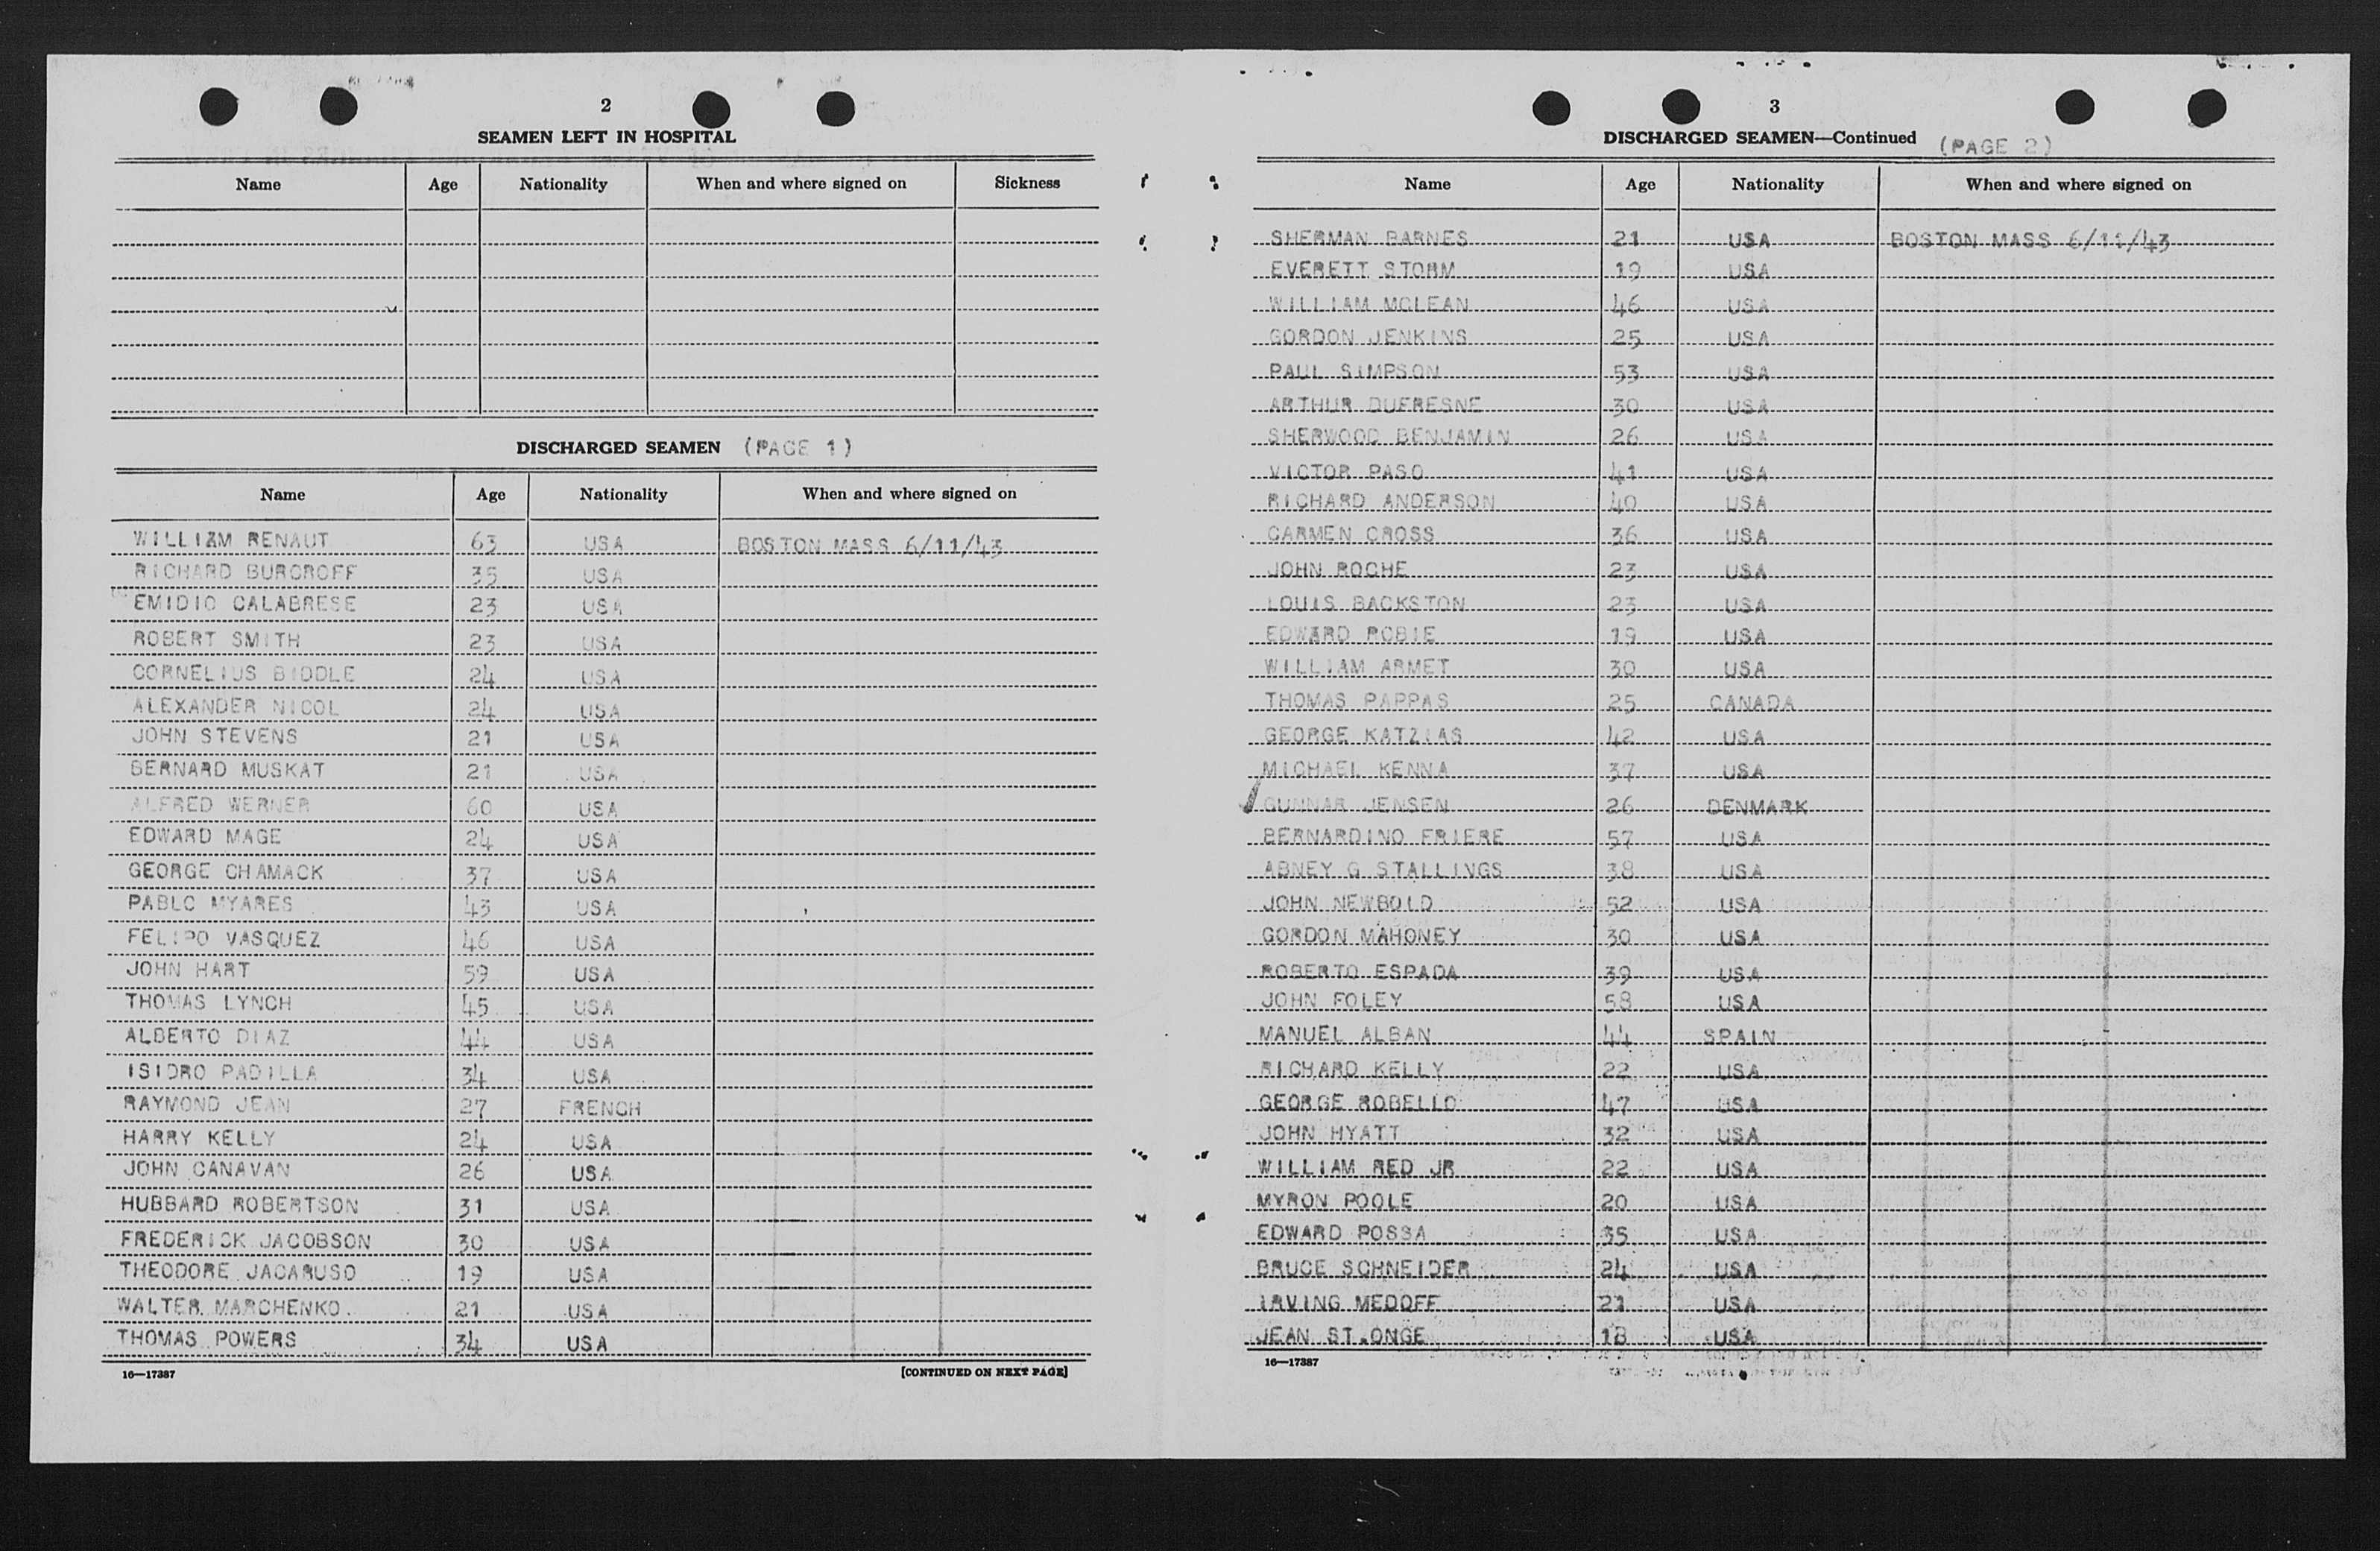 2
SEAMEN LEFT IN HOSPITAL
Name Age Nationality When and where signed on Sickness
DISCHARGED SEAMEN (PAGE 1)
Name Age Nationality When and where signed on
WILLIAM RENAUT 63 USA BOSTON MASS 6/11/43
RICHARD BURCROFF 35 USA
EMIDIO CALABRESE 23 USA
ROBERT SMITH 23 USA
CORNELIUS BIDDLE 24 USA
ALEXANDER NICOL 24 USA
JOHN STEVENS 21 USA
BERNARD MUSKAT 21 USA
ALFRED WERNER 60 USA
EDWARD MAGE 24 USA
GEORGE CHAMACK 37 USA
PABLO MYARES 43 USA
FELIPO VASQUEZ 46 USA
JOHN HART 59 USA
THOMAS LYNCH 45 USA
ALBERTO DIAZ 44 USA
ISIDRO PADILLA 34 USA
RAYMOND JEAN 27 FRENCH
HARRY KELLY 24 USA
JOHN CANAVAN 26 USA
HUBBARD ROBERTSON 31 USA
FREDERICK JACOBSON 30 USA
THEODORE JACARUSO 19 USA
WALTER MARCHENKO 21 USA
THOMAS POWERS 34 USA
16—17387 [CONTINUED ON NEXT PAGE]
3
DISCHARGED SEAMEN—Continued (PAGE 2)
Name Age Nationality When and where signed on
SHERMAN BARNES 21 USA BOSTON MASS 6/11/43
EVERETT STORM 19 USA
WILLIAM MCLEAN 46 USA
GORDON JENKINS 25 USA
PAUL SIMPSON 53 USA
ARTHUR DUFRESNE 30 USA
SHERWOOD BENJAMIN 26 USA
VICTOR PASO 41 USA
RICHARD ANDERSON 40 USA
CARMEN CROSS 36 USA
JOHN ROCHE 23 USA
LOUIS BACKSTON 23 USA
EDWARD ROBIE 19 USA
WILLIAM ARMET 30 USA
THOMAS PAPPAS 25 CANADA
GEORGE KATZIAS 42 USA
MICHAEL KENNA 37 USA
GUNNAR JENSEN 26 DENMARK
BERNARDINO FRIERE 57 USA
ABNEY G STALLINGS 38 USA
JOHN NEWBOLD 52 USA
GORDON MAHONEY 30 USA
ROBERTO ESPADA 39 USA
JOHN FOLEY 58 USA
MANUEL ALBAN 44 SPAIN
RICHARD KELLY 22 USA
GEORGE ROBELLO 47 USA
JOHN HYATT 32 USA
WILLIAM RED JR 22 USA
MYRON POOLE 20 USA
EDWARD POSSA 35 USA
BRUCE SCHNEIDER 24 USA
IRVING MEDOFF 21 USA
JEAN ST.ONGE 18 USA
16—17387